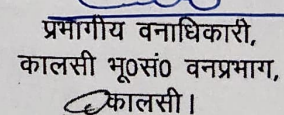 प्रभागीय वनाधिकारी,
कालसी भू०सं० वनप्रभाग,
कालसी।